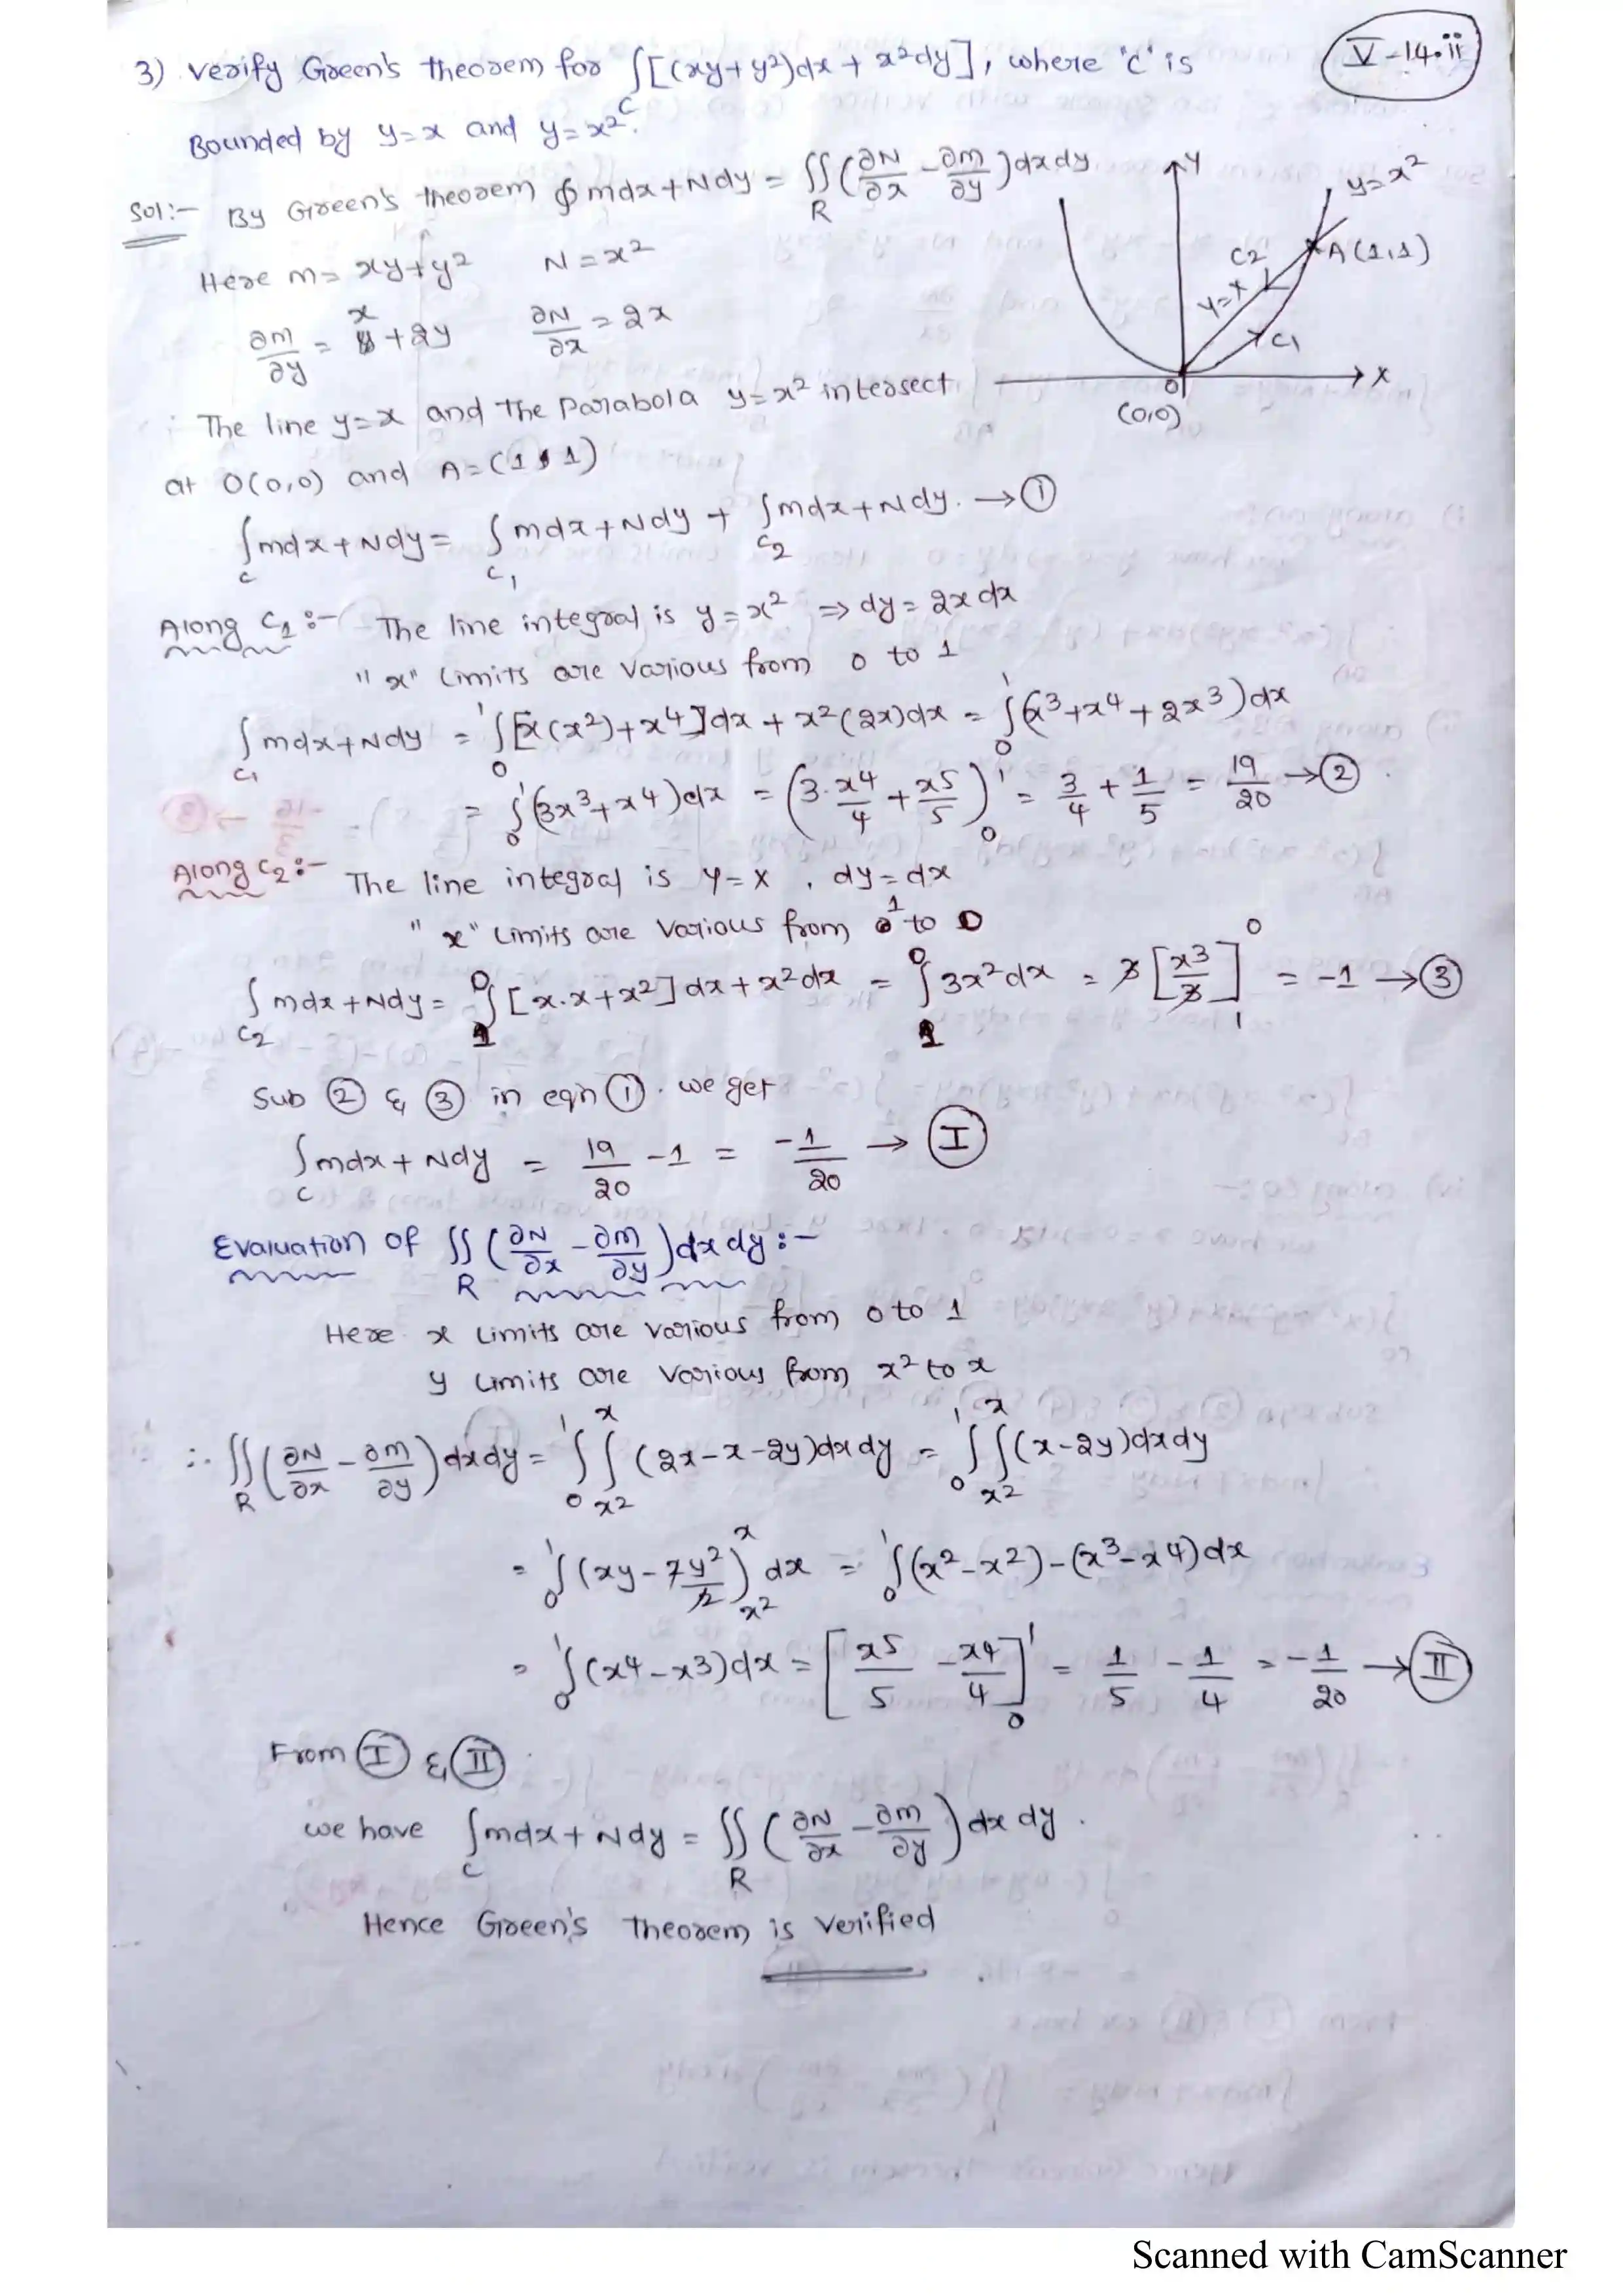 3) Verify Green's theorem for ∫_C [(xy+y²)dx + x²dy], where 'c' is
V-14.ii
Bounded by y=x and y=x².
Sol:- By Green's theorem ∮ mdx+Ndy = ∬_R (∂N/∂x - ∂m/∂y)dxdy
Here m= xy+y² N=x²
∂m/∂y = x+2y ∂N/∂x = 2x
Y
y=x²
A(1,1)
C2
y=x
C1
X
O
(0,0)
The line y=x and The Parabola y=x² intersect
at O(0,0) and A=(1,1)
∫_c mdx+Ndy = ∫_c₁ mdx+Ndy + ∫_c₂ mdx+Ndy. → ①
Along C1:- The line integral is y=x² ⇒ dy=2xdx
"x" Limits are various from 0 to 1
∫_c₁ mdx+Ndy = ∫₀¹ [x(x²)+x⁴]dx + x²(2x)dx = ∫₀¹ (x³+x⁴+2x³)dx
= ∫₀¹ (3x³+x⁴)dx = (3·x⁴/4 + x⁵/5)₀¹ = 3/4 + 1/5 = 19/20 → ②
Along C2:- The line integral is y=x, dy=dx
"x" Limits are various from 1 to 0
∫_c₂ mdx+Ndy = ∫₁⁰ [x·x+x²]dx + x²dx = ∫₁⁰ 3x²dx = 3[x³/3]₁⁰ = -1 → ③
Sub ② & ③ in eqn ①. we get
∫_c mdx+Ndy = 19/20 - 1 = -1/20 → Ⅰ
Evaluation of ∬_R (∂N/∂x - ∂m/∂y)dxdy:-
Here x Limits are various from 0 to 1
y Limits are various from x² to x
∴ ∬_R (∂N/∂x - ∂m/∂y)dxdy = ∫₀¹ ∫_{x²}^{x} (2x-x-2y)dxdy = ∫₀¹ ∫_{x²}^{x} (x-2y)dxdy
= ∫₀¹ (xy-2y²/2)_{x²}^{x} dx = ∫₀¹ (x²-x²)-(x³-x⁴)dx
= ∫₀¹ (x⁴-x³)dx = [x⁵/5 - x⁴/4]₀¹ = 1/5 - 1/4 = -1/20 → Ⅱ
From Ⅰ & Ⅱ
we have ∫_c mdx+Ndy = ∬_R (∂N/∂x - ∂m/∂y)dxdy.
Hence Green's Theorem is Verified
Scanned with CamScanner